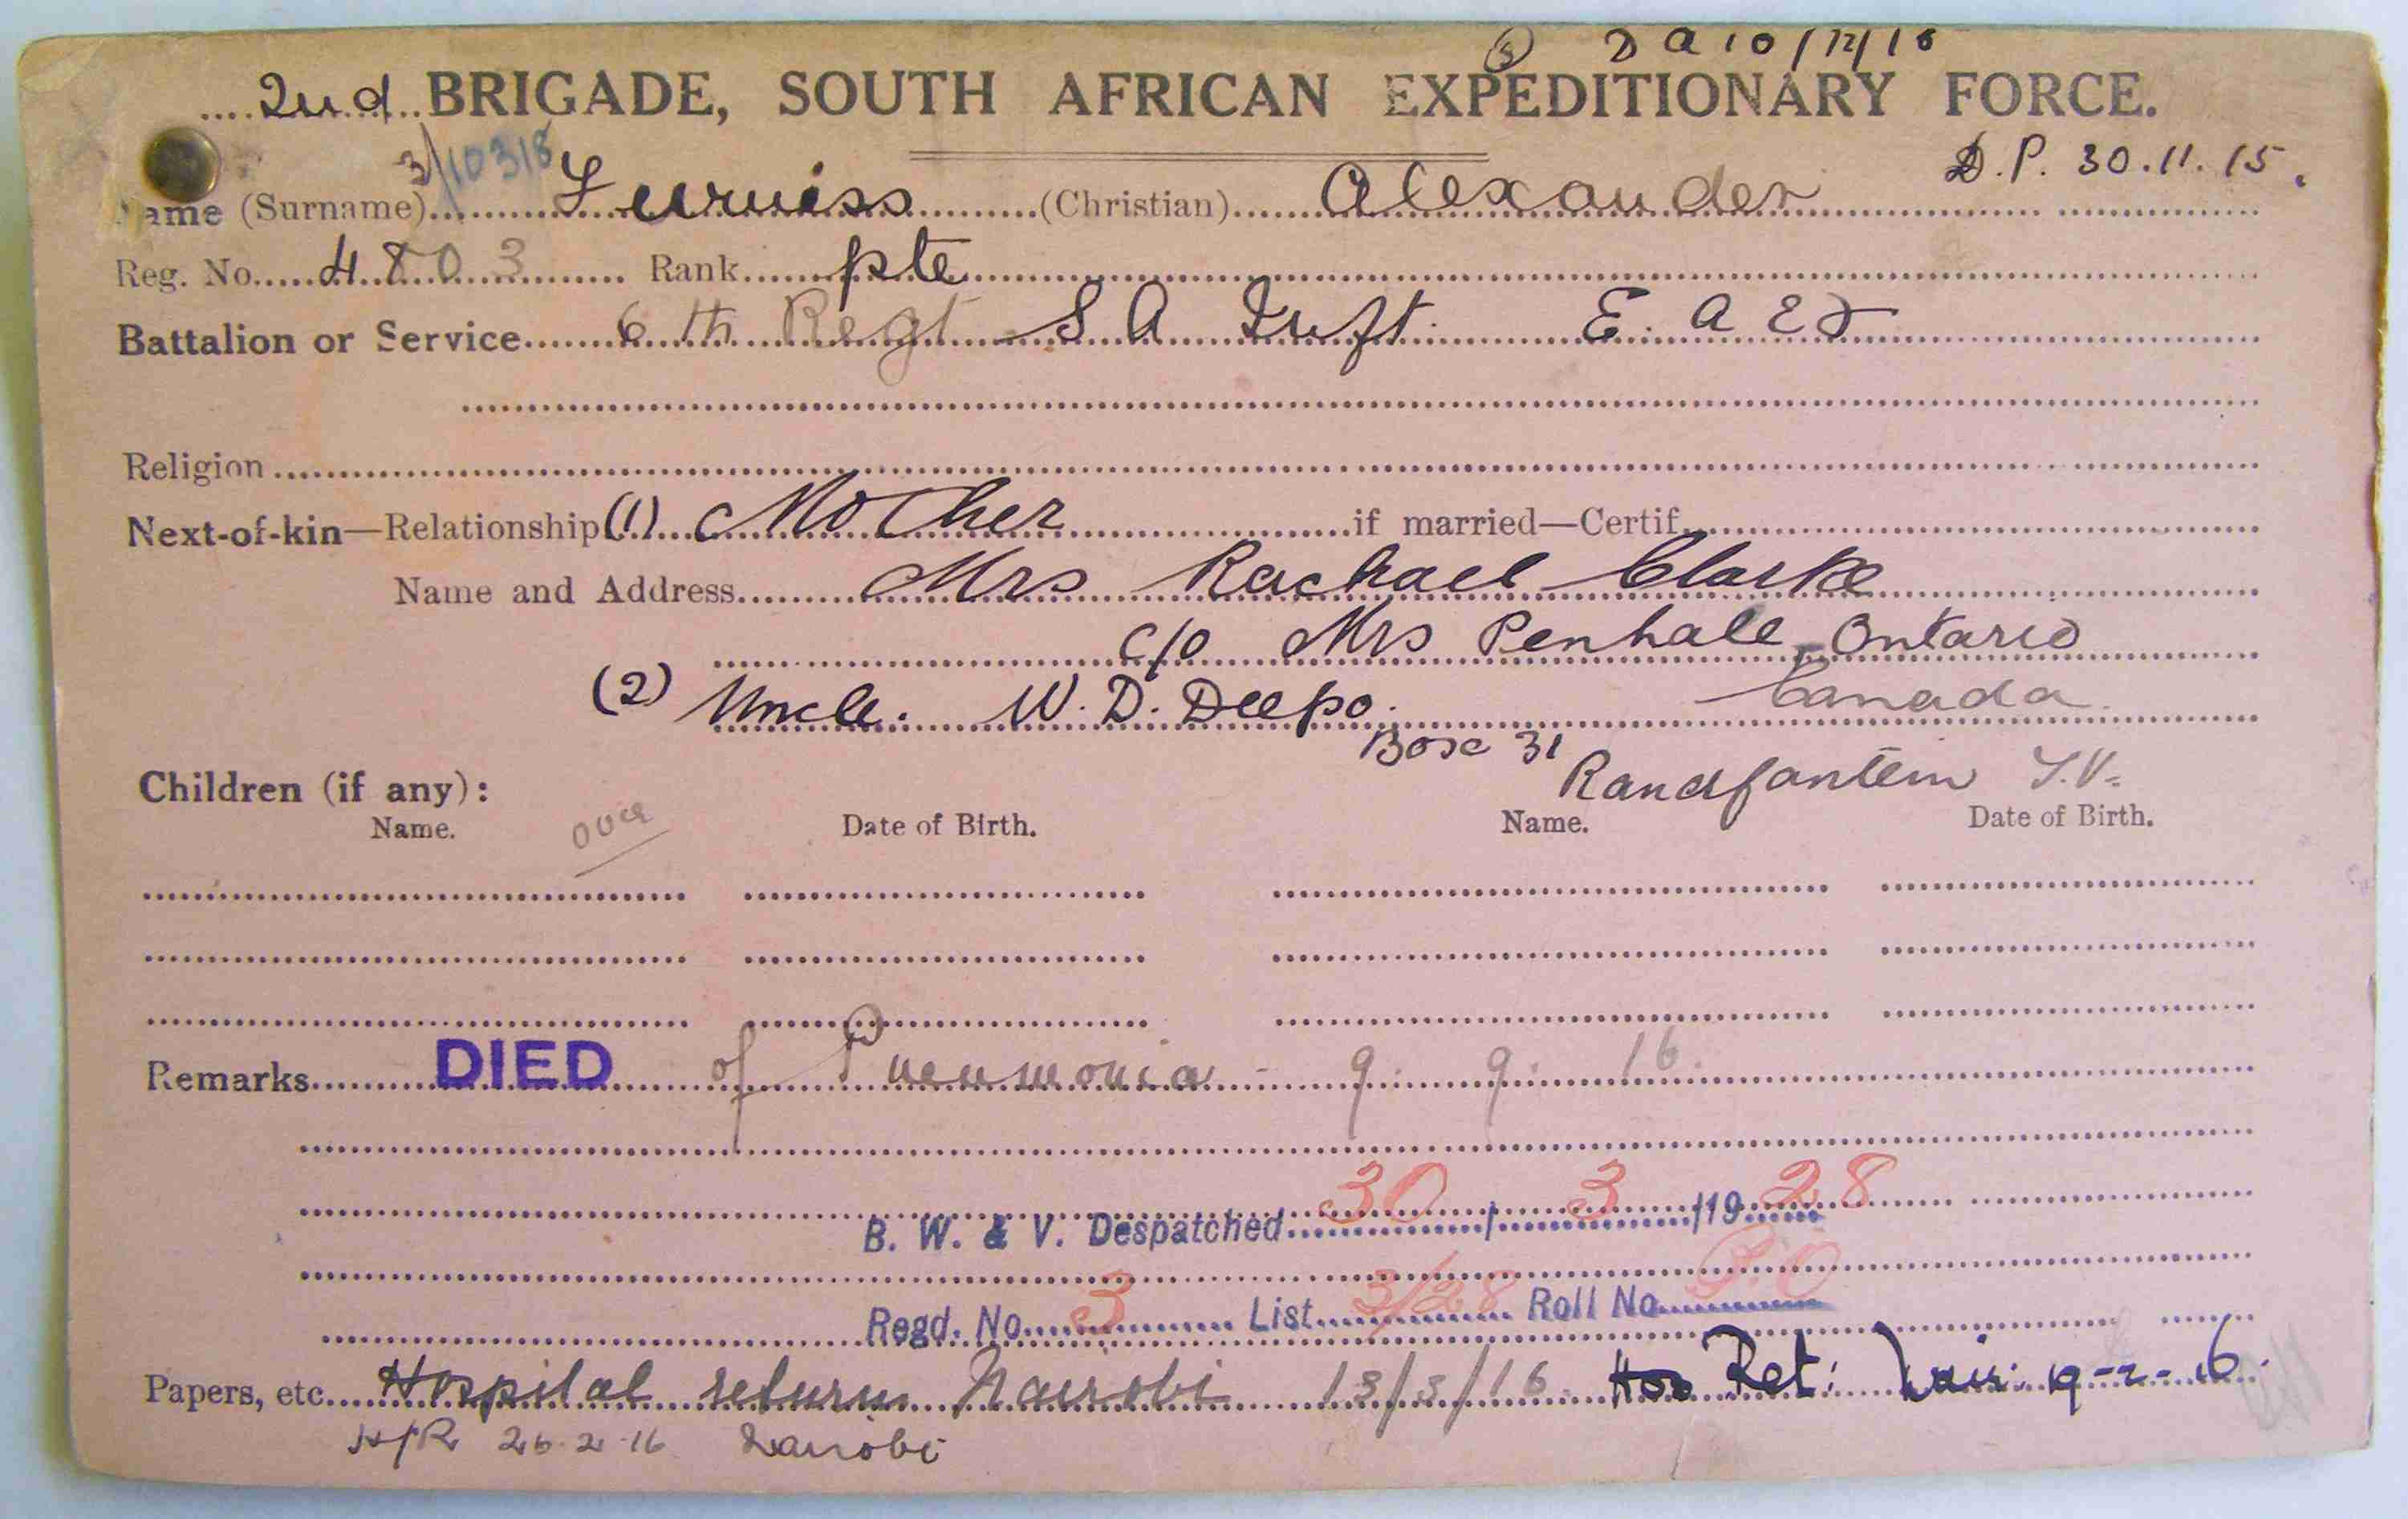 ③ D A 10/12/18
2nd BRIGADE, SOUTH AFRICAN EXPEDITIONARY FORCE.
3/10318 D.P. 30.11.15.
Name (Surname) Furniss (Christian) Alexander
Reg. No. 4803 Rank pte
Battalion or Service 6th Regt S A Inft. E. A E F
Religion
Next-of-kin—Relationship (1) Mother if married—Certif.
Name and Address Mrs Rachael Clarke
c/o Mrs Penhale Ontario
Canada
(2) Uncle. W. D. Deepo.
Box 31
Randfontein T.V.
Children (if any):
Name. over Date of Birth. Name. Date of Birth.
Remarks DIED of Pneumonia - 9. 9. 16.
B. W. & V. Despatched 30 / 3 /19 28
Regd. No. 3 List 3/28 Roll No. P.O
Papers, etc. Hospital return Nairobi 13/3/16. Hos Ret: Nair: 19-2-16.
H/R 26.2.16 Nairobi